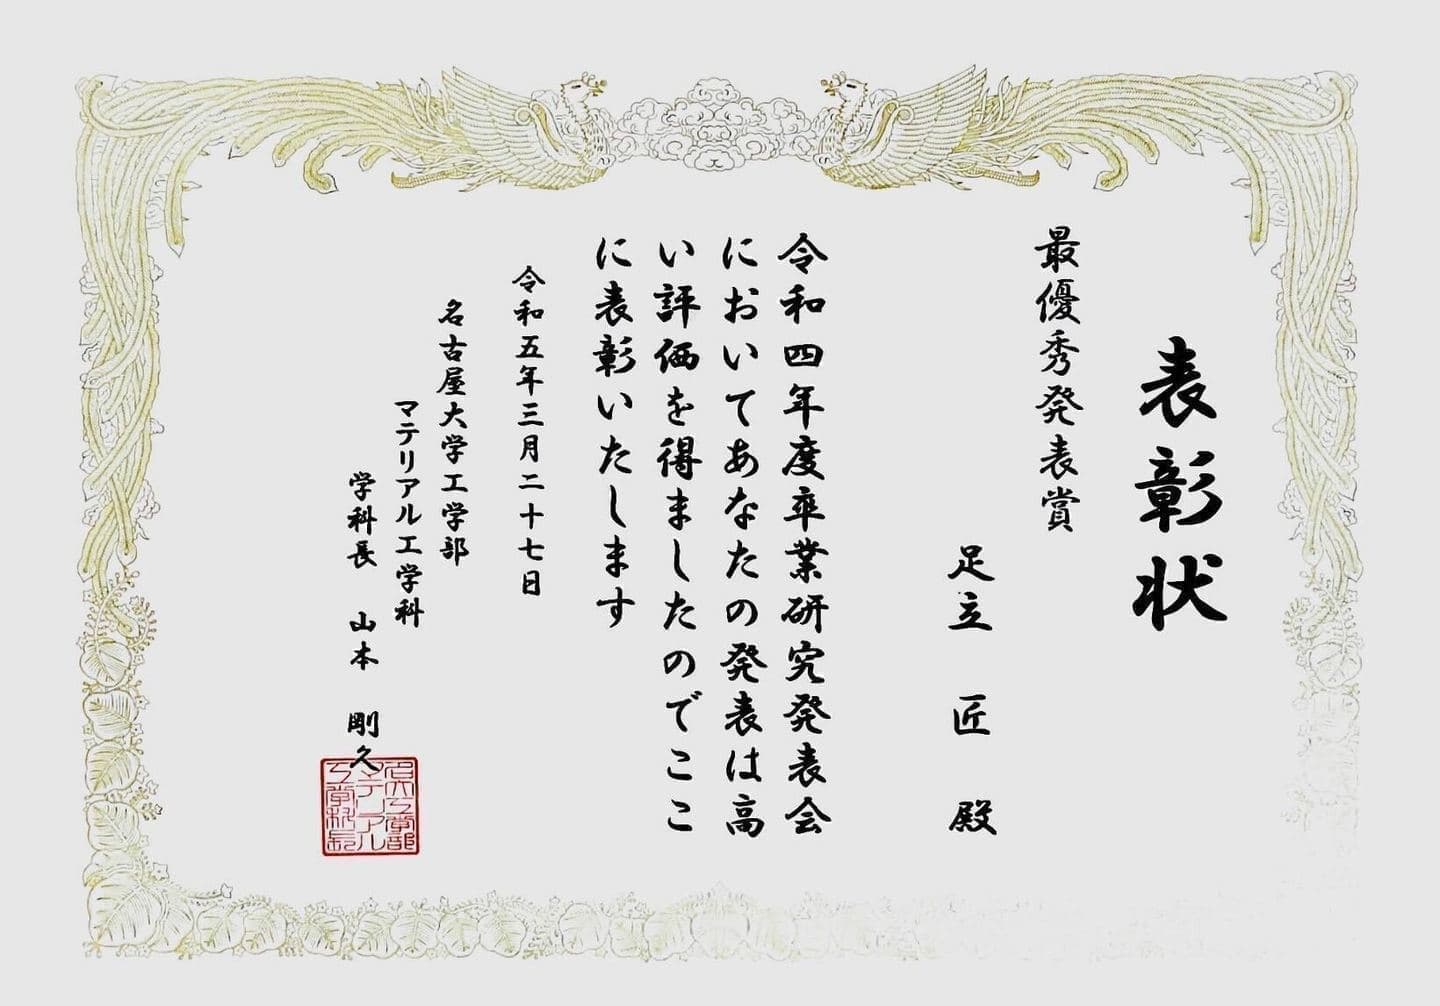 表彰状
最優秀発表賞
足立 匠 殿
令和四年度卒業研究発表会
においてあなたの発表は高
い評価を得ましたのでここ
に表彰いたします
令和五年三月二十七日
名古屋大学工学部
マテリアル工学科
学科長 山本 剛久
名大工学部
マテリアル
工学科長